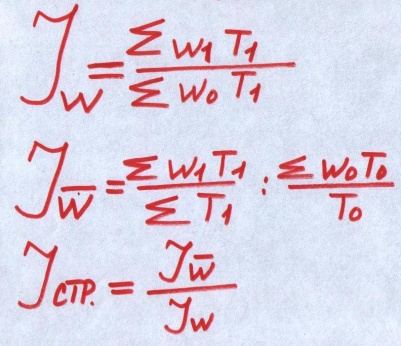 J_W = Σ W1 T1 / Σ W0 T1
J_W̅ = Σ W1 T1 / Σ T1 : Σ W0 T0 / T0
J_СТР. = J_W̅ / J_W